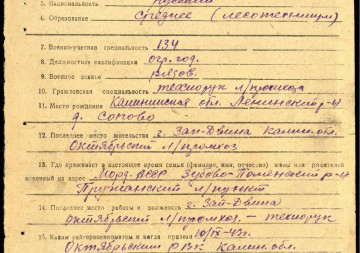 5. Национальность Русский
6. Образование Среднее (лесотехникум)
7. Военно-учетная специальность 134
8. Должностная квалификация огр. год.
9. Военное звание рядов.
10. Гражданская специальность технорук л/промхоза
11. Место рождения Калининская обл. Ленинский р-н
д. Сопово
12. Последнее место жительства г. Зап-Двина Калин. обл.
Октябрьский л/промхоз
13. Где проживает в настоящее время семья (фамилия, имя, отчество) жены или родителей
и точный их адрес Морд. АССР Зубово-Полянский р-н
л/пункт
14. Последнее место работы и должность г. Зап-Двина
Октябрьский л/промхоз — технорук
15. Каким райгорвоенкоматом и когда призван 10/IX-41г.
Октябрьским РВК Калин. обл.